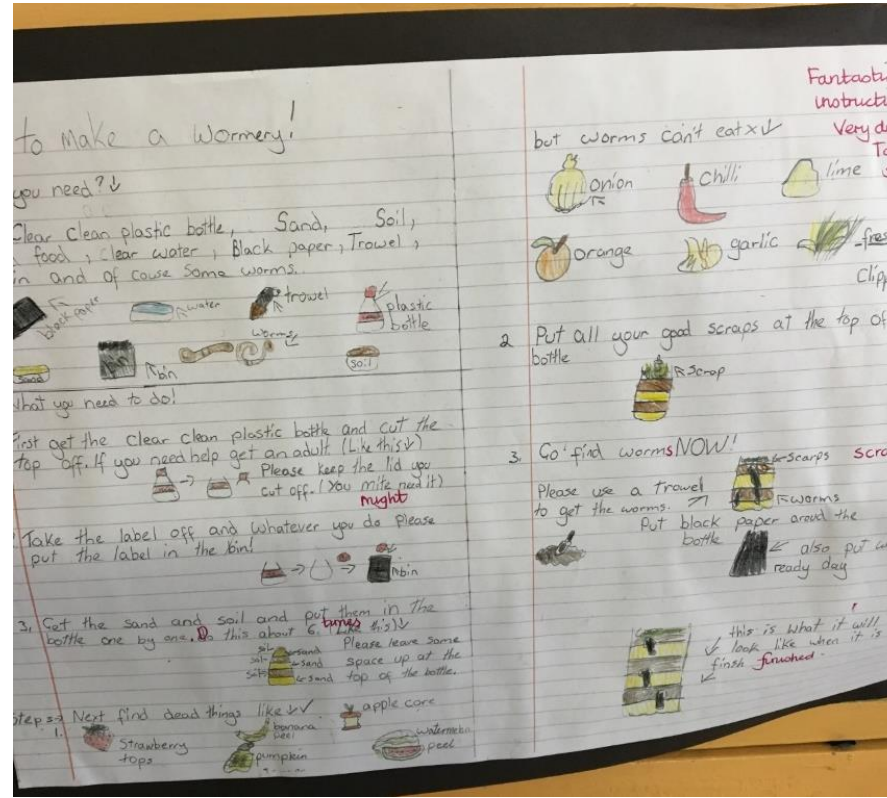 to Make a Wormery!
you need?↓
Clear Clean plastic bottle, Sand, Soil,
food, Clear water, Black paper, Trowel,
in and of couse Some worms.
black paper
water
trowel
plastic
bottle
sand
bin
worms
soil
What you need to do!
First get the Clear Clean plastic bottle and cut the
top off. If you need help get an adult (Like this↓)
Please keep the lid you
cut off. (You mite need it)
might
Take the label off and whatever you do Please
put the label in the bin!
bin
3. Get the sand and soil and put them in the
bottle one by one. Do this about 6 times (Like this)↓
soil
sand
Please leave some
soil
sand
space up at the
soil
sand
top of the bottle.
Steps→ Next find dead things like↓✓
apple core
1.
Strawberry
tops
banana
peel
pumpkin
watermelon
peel
but worms can't eat×↓
onion
chilli
lime
orange
garlic
2 Put all your good scraps at the top of
bottle
scrop
3. Go find worms NOW!
scarps
Please use a Trowel
to get the worms.
worms
Put black paper aroud the
bottle
also put
ready day
this is what it will
look like when it is
finsh finished.
Very